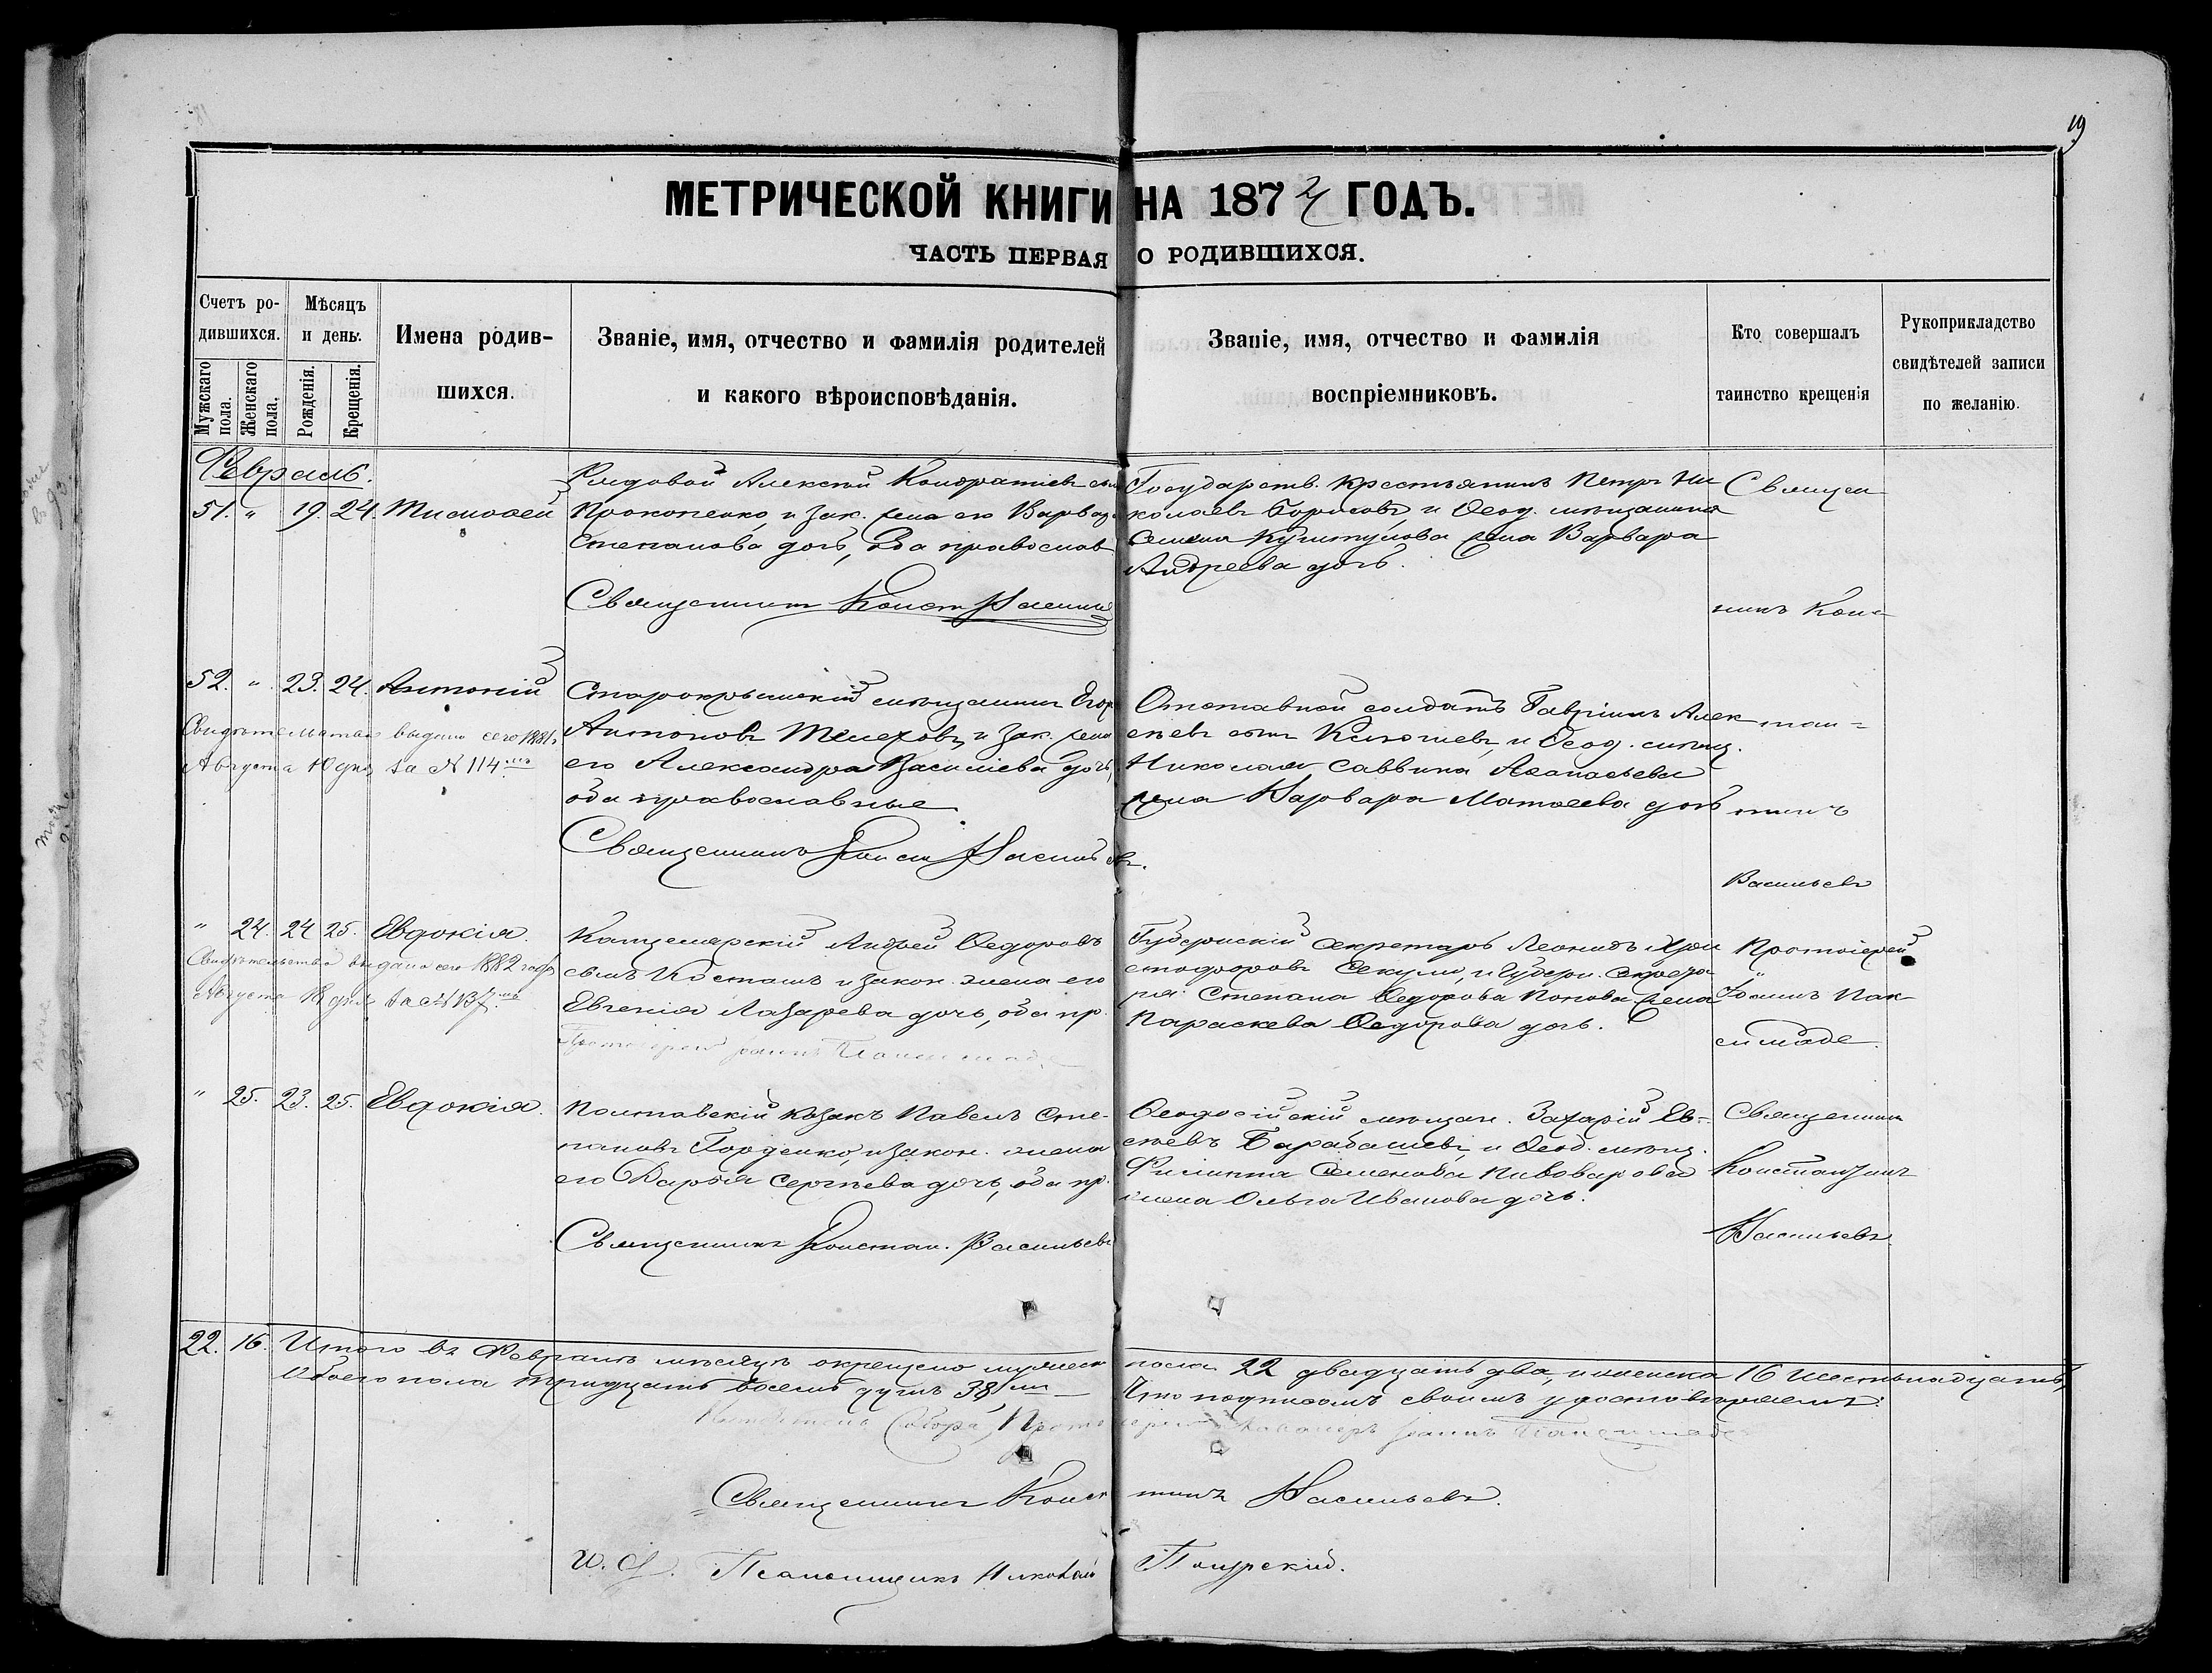 19
МЕТРИЧЕСКОЙ КНИГИ НА 1872 ГОДЪ.
ЧАСТЬ ПЕРВАЯ О РОДИВШИХСЯ.
Счетъ ро-
дившихся.
Мужскаго пола.
Женскаго пола.
Мѣсяцъ
и день.
Рожденія.
Крещенія.
Имена родив-
шихся.
Званіе, имя, отчество и фамилія родителей
и какого вѣроисповѣданія.
Званіе, имя, отчество и фамилія
воспріемниковъ.
Кто совершалъ
таинство крещенія
Рукоприкладство
свидѣтелей записи
по желанію.
Февраль.
51. " 19. 24. Тимоѳей
Рядовой Алексѣй Кондратіевъ сынъ
Прокопенко, и зак. жена его Варвара
Степанова дочь, оба православ
Священникъ Конст Васильевъ
Государств. Крестьянинъ Петръ Ни
колаевъ Борисовъ, и Ѳеод. мѣщанина
Семена жена Варвара
Андреева дочь.
Священ
никъ Кон-
стан-
тинъ
Васильевъ
52. " 23. 24. Антоній
Свидѣтельство выдано сего 1881 г.
Августа 10 дня за № 114.
Старокрымскій мѣщанинъ Егоръ
Антоновъ и зак. жена
его Александра Василіева дочь,
оба православные
Священникъ Конст Васильевъ.
Отставной солдатъ Гавріилъ Алек
сѣевъ сынъ и Ѳеод. мѣщ.
Николая Саввина Аѳанасьева
жена Варвара Матѳеева дочь
" 24. 24 25. Евдокія.
Свидѣтельство выдано сего 1882 года
Августа 18 дня за № 137.
Андрей Ѳедоровъ
сынъ и закон. жена его
Евгенія Лазарева дочь, оба пр.
Протоіерей Іоаннъ Паксимаде
Губернскій Секретарь Леонидъ Хри
стофоровъ Секули, и Губерн. Секрета
ря Степана Ѳедорова Попова жена
Параскева Ѳедорова дочь.
Протоіерей
Іоаннъ Пак-
симаде.
" 25. 23. 25. Евдокія.
Полтавскій казакъ Павелъ Сте-
пановъ Горденко, и закон. жена
его Дарья Сергѣева дочь, оба пр.
Священникъ Констан. Васильевъ
Ѳеодосійскій мѣщан. Захарій Ев-
сѣевъ Барабашевъ, и Ѳеод. мѣщ.
Филиппа Семенова Пивоварова
жена Ольга Иванова дочь.
Священникъ
Константинъ
Васильевъ.
22. 16. Итого въ Февралѣ мѣсяцѣ окрещено мужеск пола 22 двадцать два, и женска 16 шестьнадцать,
Обоего пола тридцать восемь душъ 38, Что подписомъ своимъ удостовѣряемъ:
Настоятель Собора, Протоіерей Іоаннъ Паксимаде
Священникъ Констан тинъ Васильевъ.
И. д. Псаломщика Николай